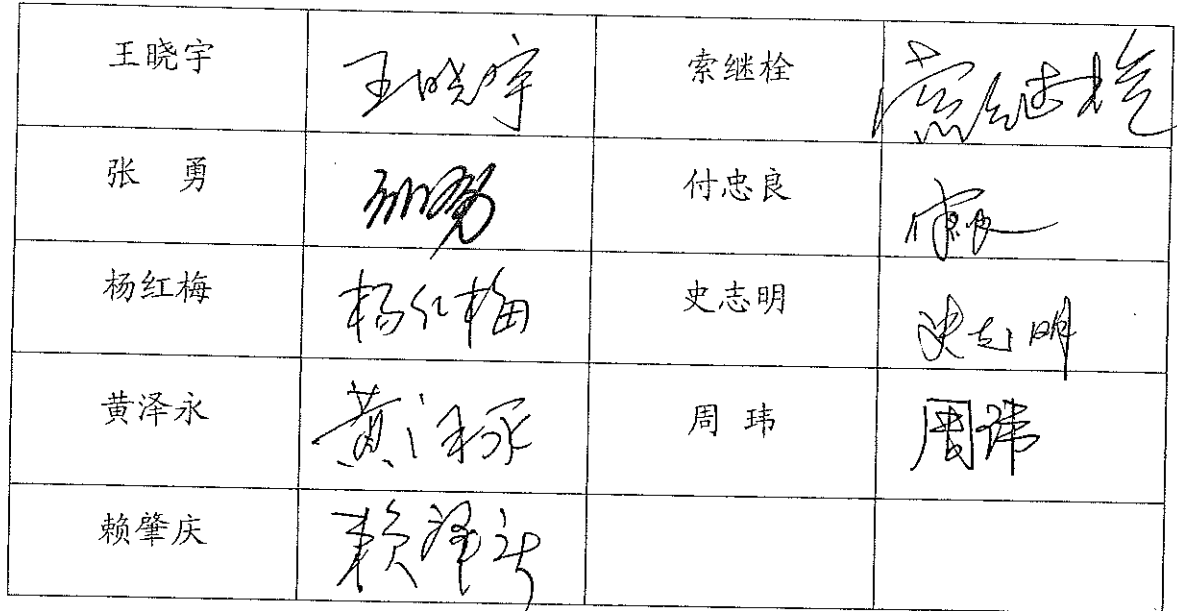 王晓宇 王晓宇 索继栓 索继栓
张 勇 张勇 付忠良 付忠良
杨红梅 杨红梅 史志明 史志明
黄泽永 黄泽永 周 玮 周玮
赖肇庆 赖肇庆